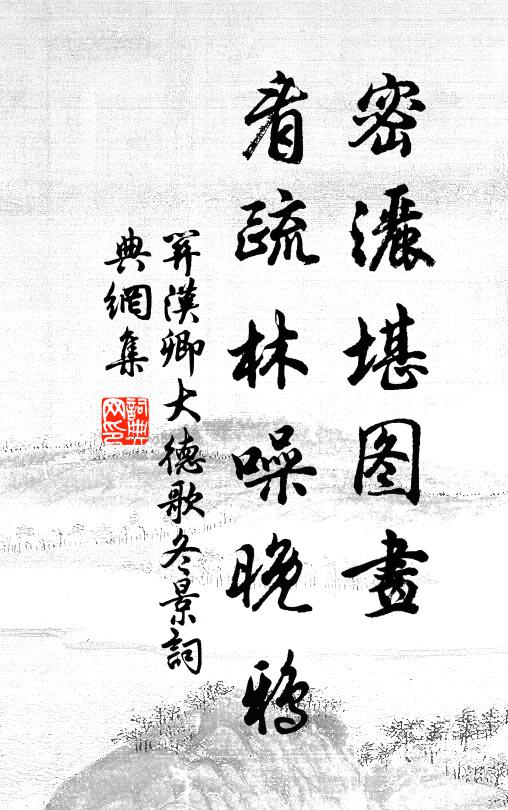 密灑堪图畫
看疏林噪晚鸦
关漢卿大德歌冬景詞
典網集
詞典网印